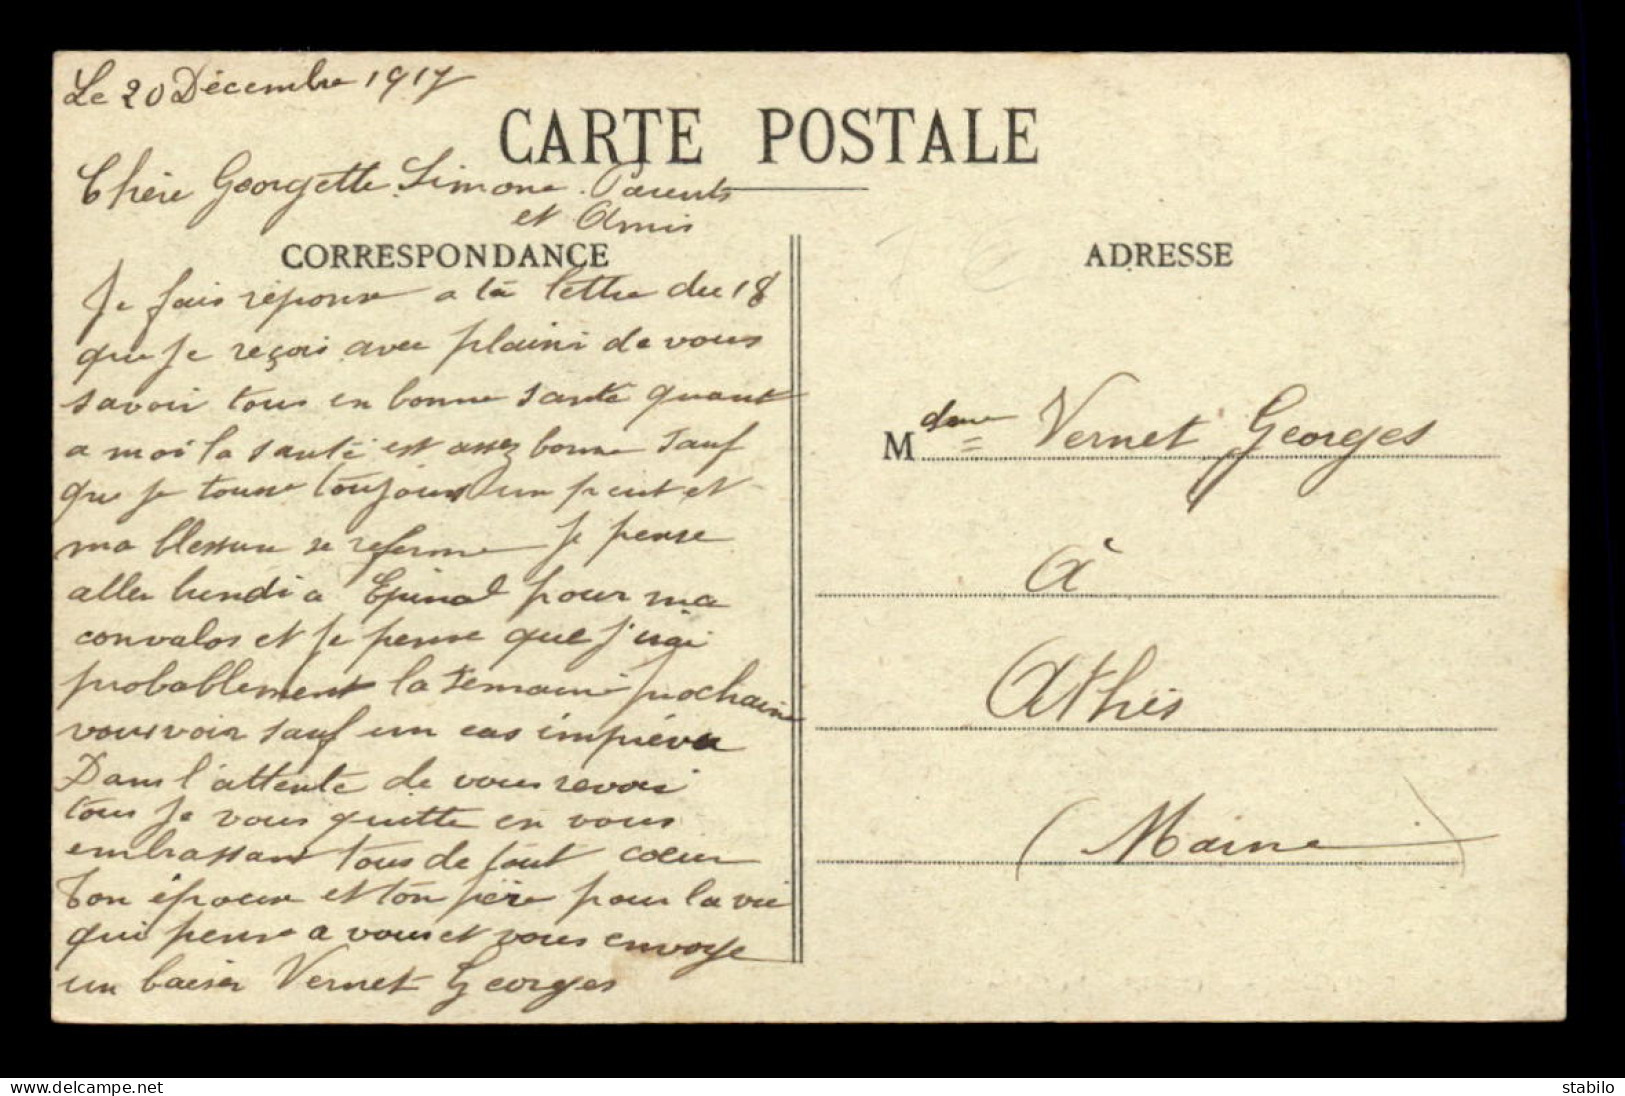 Le 20 Décembre 1917
CARTE POSTALE
Chère Georgette Simone. Parents
et Amis
CORRESPONDANCE
Je fais réponse a ta lettre du 18
que je reçois avec plaisir de vous
savoir tous en bonne santé quant
a moi la santé est assez bonne sauf
que je tousse toujours un peut et
ma blessure se referme Je pense
aller lundi a Epinal pour ma
convalos et je pense que j'irai
probablement la semaine prochaine
vous voir sauf un cas imprévu
Dans l'attente de vous revoir
tous Je vous quitte en vous
embrassant tous de tout coeur
Ton époux et ton père pour la vie
qui pense a vous et vous envoye
un baiser Vernet Georges
ADRESSE
Mdame Vernet Georges
à
Athis
(Marne)
www.delcampe.net
stabilo